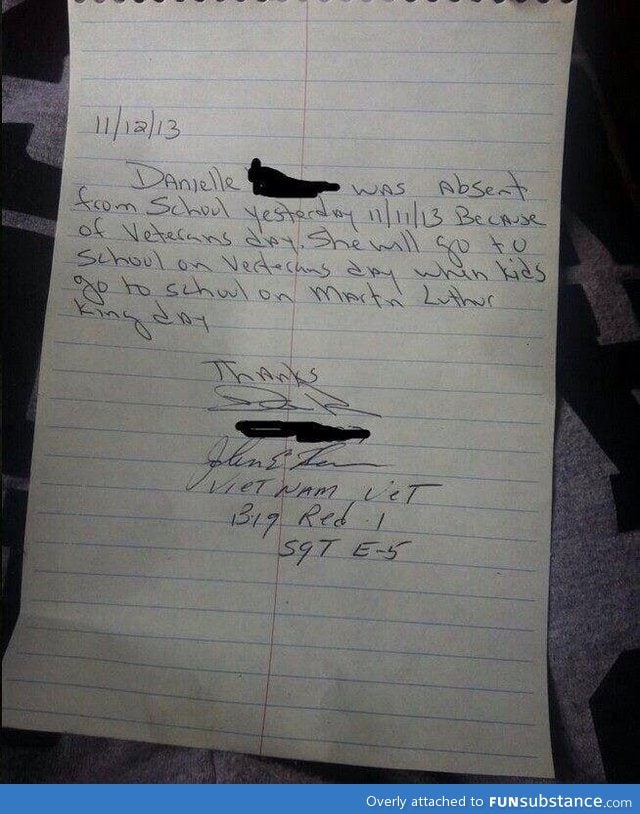 11/12/13
Danielle was Absent
from School yesterday 11/11/13 Because
of Veterans day. She will go to
School on Vecterans day when kids
go to school on Martn Luthur
King day
Thanks
VIET NAM VET
Big Red 1
SgT E-5
Overly attached to FUNsubstance.com